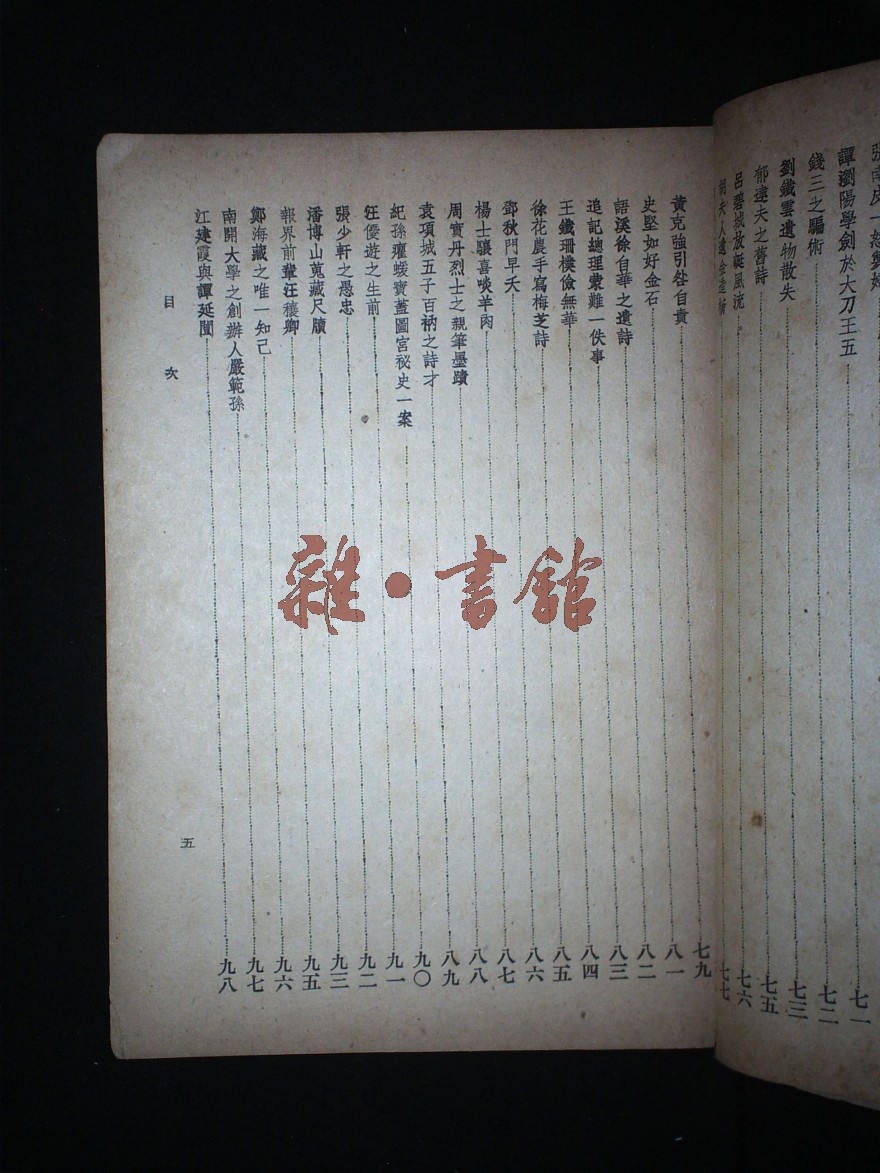 譚瀏陽學劍於大刀王五 七一
錢三之騙術 七二
劉鐵雲遺物散失 七三
郁達夫之舊詩 七五
呂碧城放艇風流 七六
夫人遺金 七七
黃克強引咎自責 七九
史堅如好金石 八一
語溪徐自華之遺詩 八二
追記總理蒙難一佚事 八三
王鐵珊樸儉無華 八四
徐花農手寫梅芝詩 八五
鄧秋門早夭 八六
楊士驤喜啖羊肉 八七
周實丹烈士之親筆墨蹟 八八
袁項城五子百衲之詩才 八九
紀孫癯蝯寶蓋圖宮祕史一案 九〇
汪優遊之生前 九一
張少軒之愚忠 九二
潘博山蒐藏尺牘 九三
報界前輩汪穰卿 九五
鄭海藏之唯一知己 九六
南開大學之創辦人嚴範孫 九七
江建霞與譚延闓 九八
目次
五
雜·書館